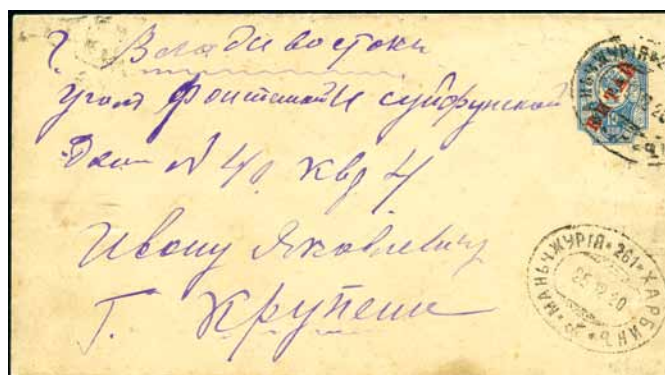 г. Владивостокъ
угол Фонтанной и Суйфунской
Дом № 40 кв 4
Ивану Яковлевичу
Г. Крупени
КИТАЙ
МАНЬЧЖУРІЯ * 261 * ХАРБИНЪ
25 12 20